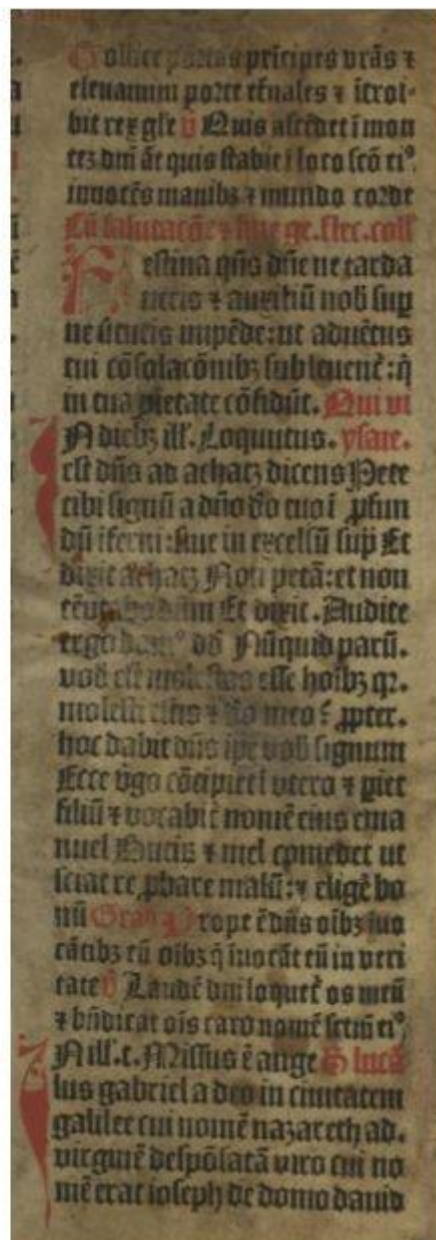 Tollite portas prĩcipes vrãs ⁊
eleuamini porte et̃nales ⁊ ĩtroi-
bit rex glẽ ℣ Quis ascẽdet ĩ mon
tez dñi āt quis stabit ĩ loco scõ ei⁹.
ĩnnocẽs manibꝫ ⁊ mundo corde
Cũ salutacõe
Festina qũs dñe ne tarda
ueris ⁊ auxiliũ nob̃ sup̃
ne ũtutis impẽde: ut aduẽtus
tui cõsolacõnibꝫ subleuent̃: q̃
in tua pietate cõfidũt.
IN diebꝫ ill̃. Loquutus. ysaie.
est dñs ad achaz dicens Pete
tibi signũ a dño do tuo ĩ ꝓfun
dũ ĩferni: siue in excelsũ sup̃ Et
dixit achaz Non petã: et non
tẽptabo dñm Et dixit. Audite
ergo dauid Nũquid parũ.
vob̃ est molestos esse hoĩbꝫ qꝛ.
molesti estis ⁊ do meo? ꝓpter.
hoc dabit dñs ipẽ vob̃ signum
Ecce ṽgo cõcipiet ĩ vtero ⁊ piet
filiũ ⁊ vocabit̃ nomẽ eius ema
nuel Butir̃ ⁊ mel comedet ut
sciat reꝓbare malũ: ⁊ eligẽ bo
nũ Grad̃ Prope ẽ dñs oĩbꝫ ĩuo
cãtibꝫ eũ oĩbꝫ q̃ ĩuocãt eũ in veri
tate ℣ Laudẽ dñi loquet̃ os meũ
⁊ bñdicat oĩs caro nomẽ sctm̃ ei⁹
IN ill̃. t. Missus ẽ ange S lucã
lus gabriel a deo in ciuitatem
galilee cui nomẽ nazareth ad.
virginẽ despõsatã viro cui no
mẽ erat ioseph de domo dauid